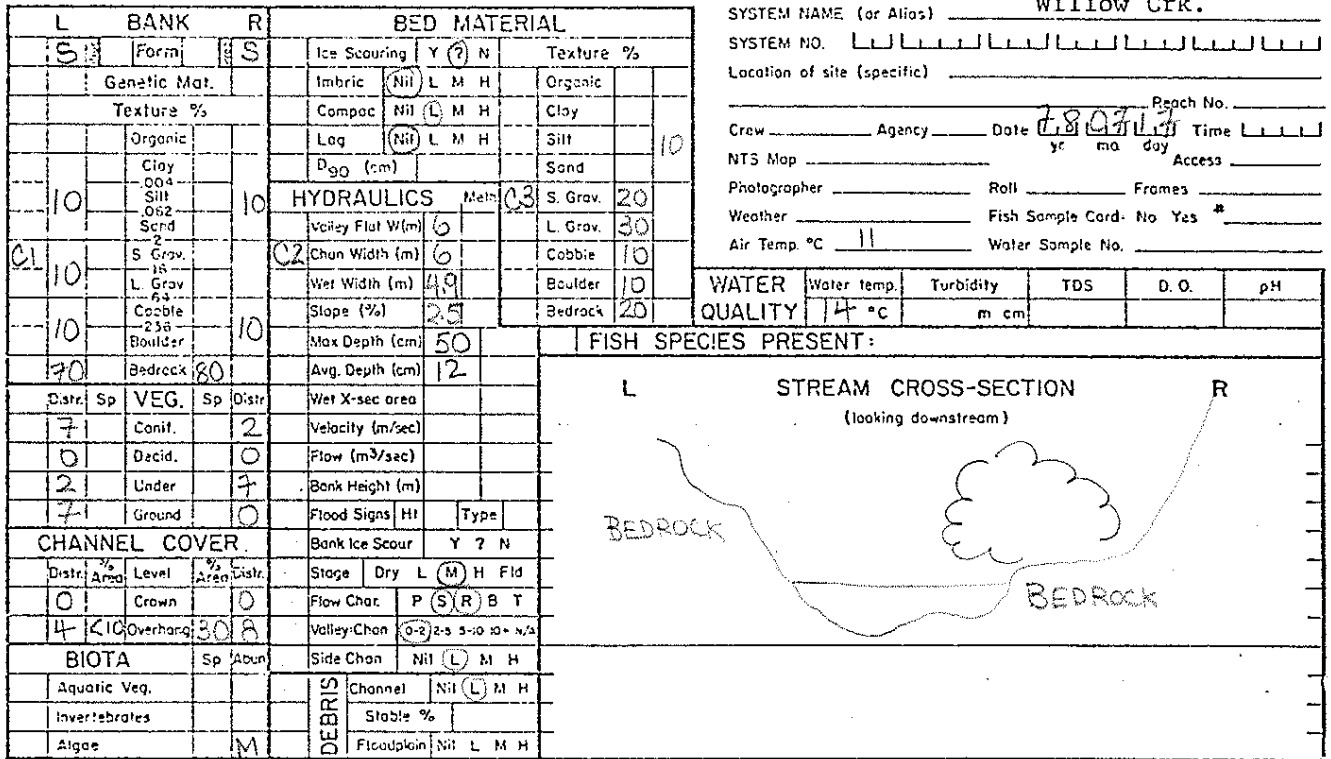 L BANK R
S Form S
Genetic Mat.
Texture %
Organic
Clay
.004
10 Silt 10
.062
Sand
2
C1 10 S. Grav.
16
L. Grav
64
10 Cobble 10
256
Boulder
70 Bedrock 80
Distr. Sp VEG. Sp Distr
7 Conif. 2
0 Decid. 0
2 Under 7
7 Ground 0
CHANNEL COVER
Distr. % Area Level % Area Distr.
0 Crown 0
4 <10 Overhang 30 8
BIOTA Sp Abun
Aquatic Veg.
Invertebrates
Algae M
BED MATERIAL
Ice Scouring Y ? N
Imbric Nil L M H
Compac Nil L M H
Lag Nil L M H
D90 (cm)
Texture %
Organic
Clay
Silt 10
Sand
C3 S. Grav. 20
L. Grav. 30
Cobble 10
Boulder 10
Bedrock 20
HYDRAULICS Meth
Valley Flat W(m) 6
C2 Chan Width (m) 6
Wet Width (m) 4.9
Slope (%) 2.5
Max Depth (cm) 50
Avg. Depth (cm) 12
Wet X-sec area
Velocity (m/sec)
Flow (m³/sec)
Bank Height (m)
Flood Signs Ht Type
Bank Ice Scour Y ? N
Stage Dry L M H Fld
Flow Char. P S R B T
Valley:Chan 0-2 2-5 5-10 10+ N/A
Side Chan Nil L M H
DEBRIS
Channel Nil L M H
Stable %
Floodplain Nil L M H
SYSTEM NAME (or Alias) Willow Crk.
SYSTEM NO.
Location of site (specific)
Reach No.
Crew Agency Date 780717 Time
yr mo day
NTS Map Access
Photographer Roll Frames
Weather Fish Sample Card- No Yes #
Air Temp. °C 11 Water Sample No.
WATER QUALITY Water temp. Turbidity TDS D. O. pH
14 °C m cm
FISH SPECIES PRESENT:
L STREAM CROSS-SECTION R
(looking downstream)
BEDROCK
BEDROCK